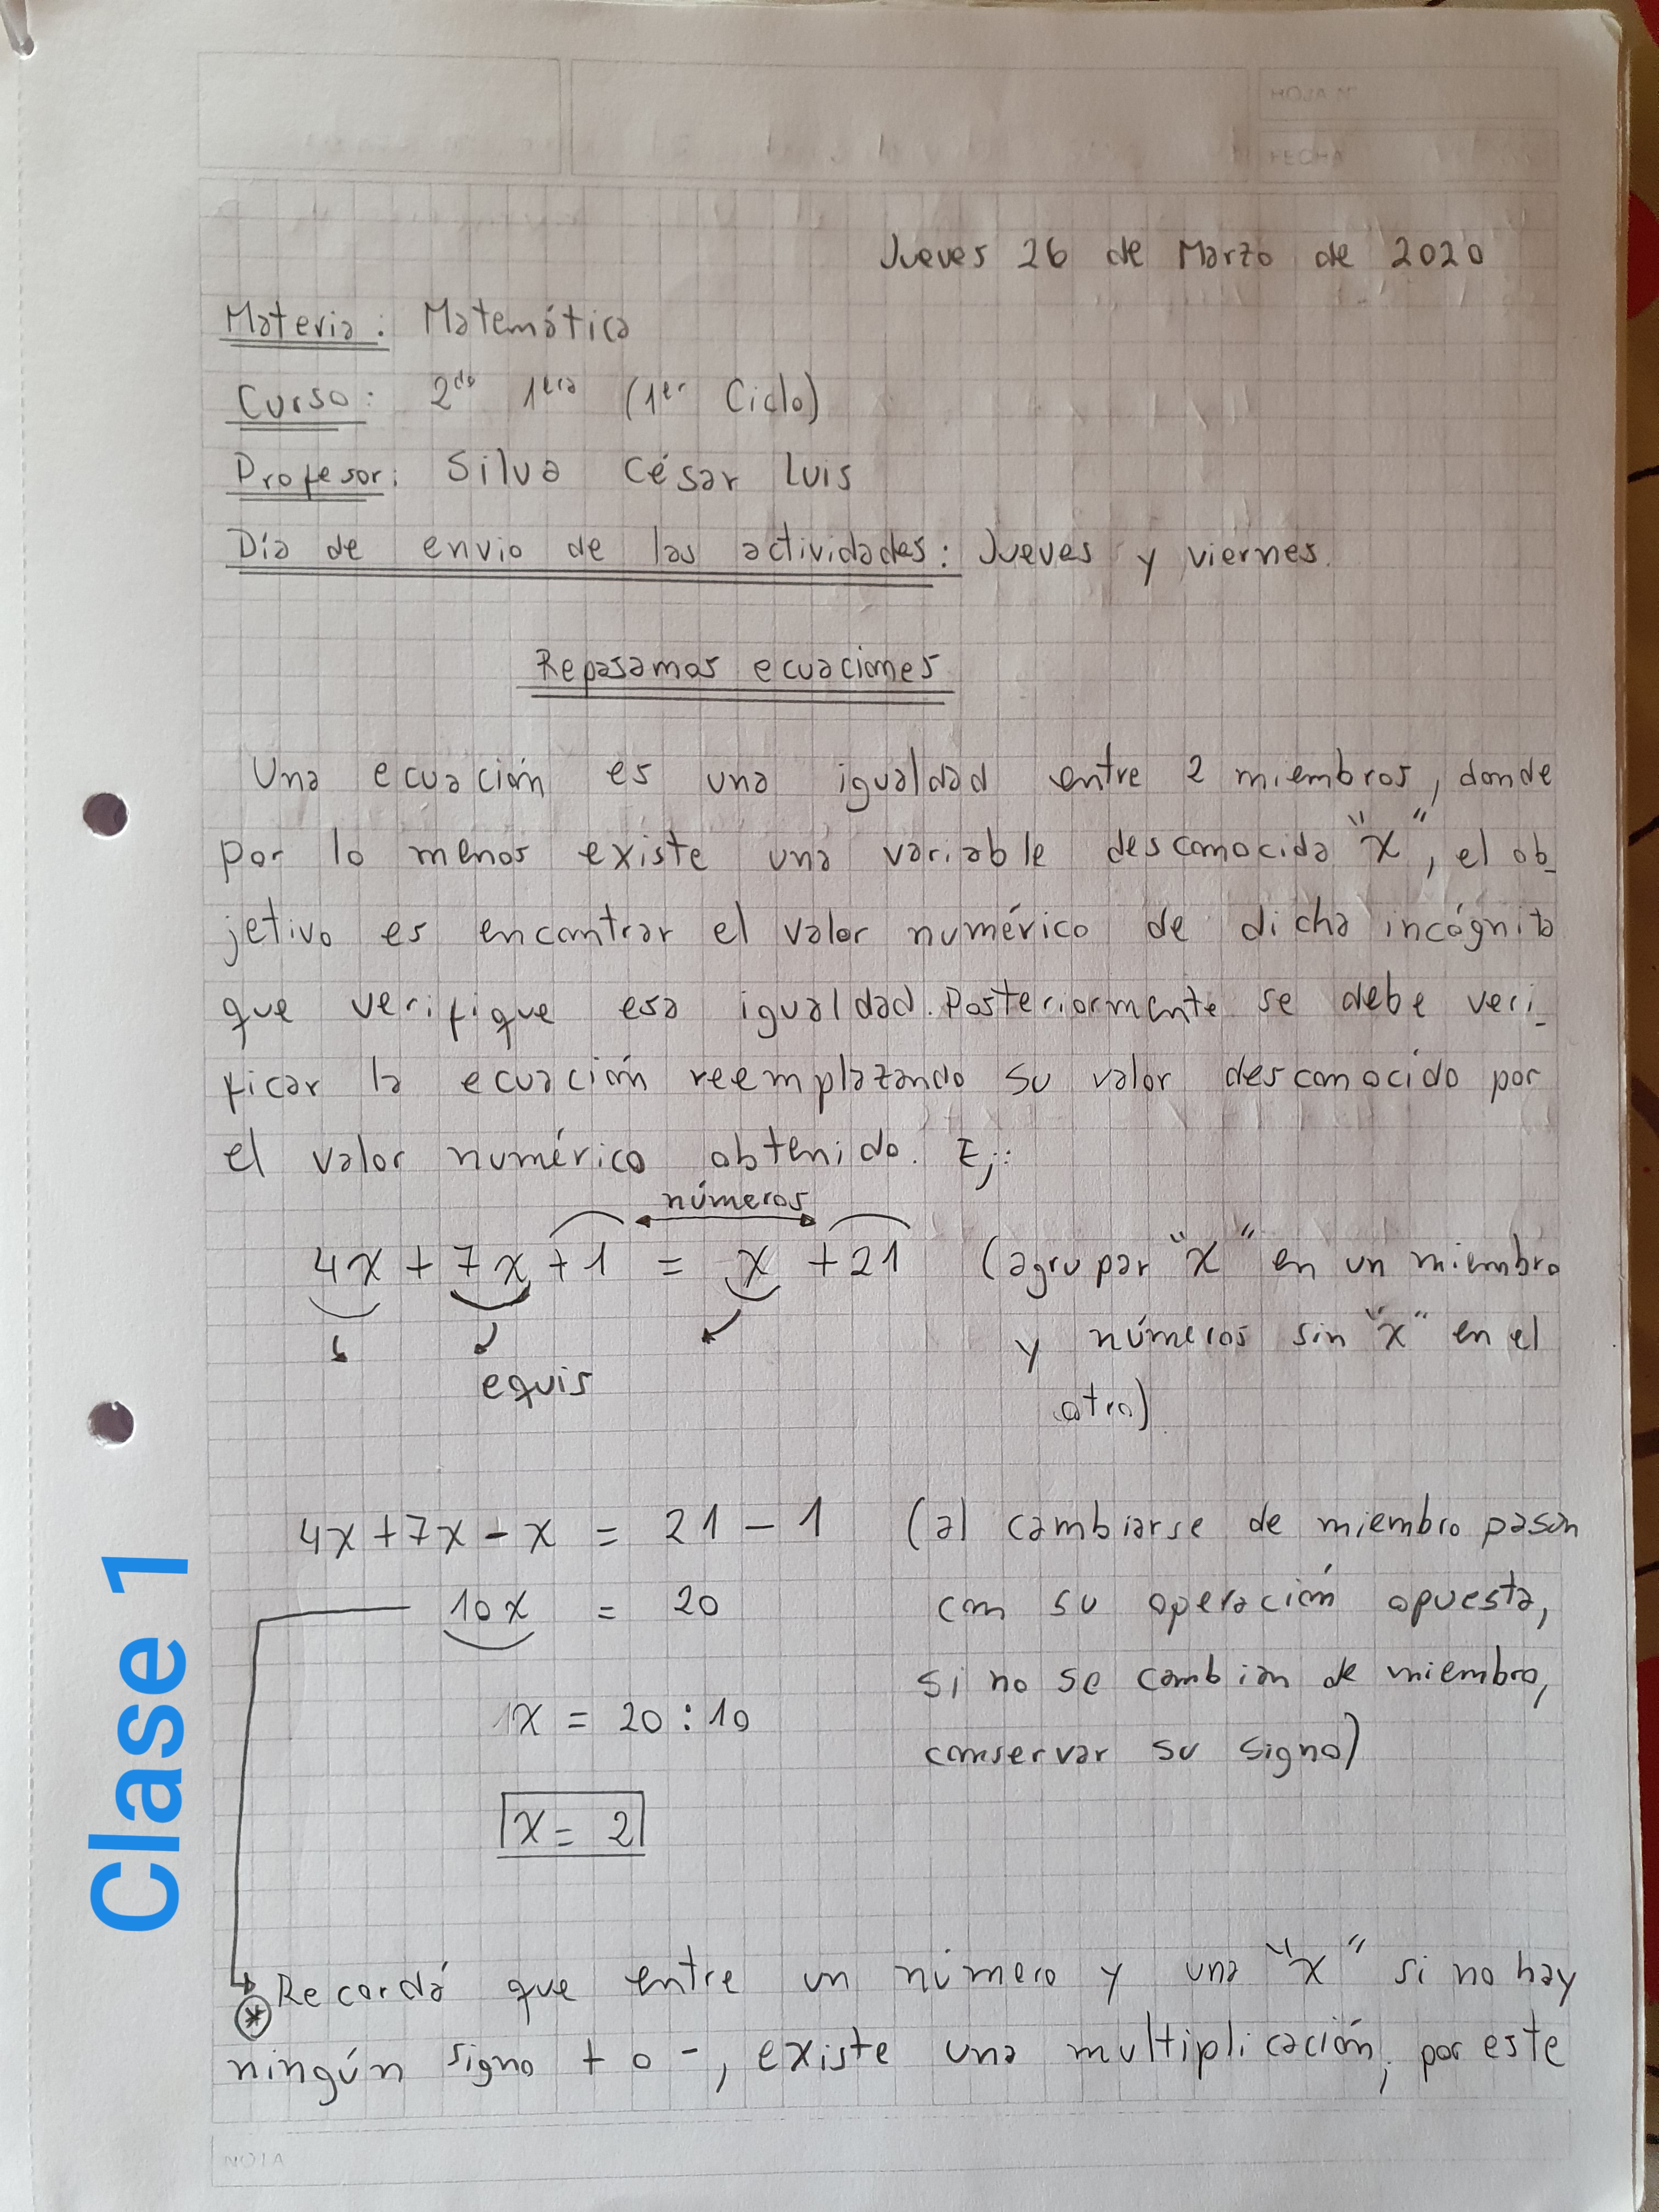 HOJA Nº
FECHA
Jueves 26 de Marzo de 2020
Materia: Matemática
Curso: 2do 1era (1er Ciclo)
Profesor: Silva César Luis
Día de envio de las actividades: Jueves y viernes.
Repasamos ecuaciones
Una ecuación es una igualdad entre 2 miembros, donde
por lo menos existe una variable desconocida "x", el ob-
jetivo es encontrar el valor numérico de dicha incógnita
que verifique esa igualdad. Posteriormente se debe veri-
ficar la ecuación reemplazando su valor desconocido por
el valor numérico obtenido. Ej:
números
4x + 7x + 1 = x + 21 (agrupar "x" en un miembro
y números sin "x" en el
equis
otro)
4x + 7x - x = 21 - 1 (al cambiarse de miembro pasan
10x = 20 con su operación opuesta,
si no se cambian de miembro,
1x = 20 : 10
conservar su signo)
x = 2
Clase 1
* Recordá que entre un número y una "x" si no hay
ningún signo + o -, existe una multiplicación, por este
NOTA